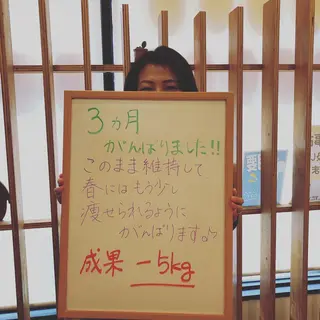 3ヵ月
がんばりました!!
このまま維持して
春にはもう少し
痩せられるように
がんばります。
成果 -5kg